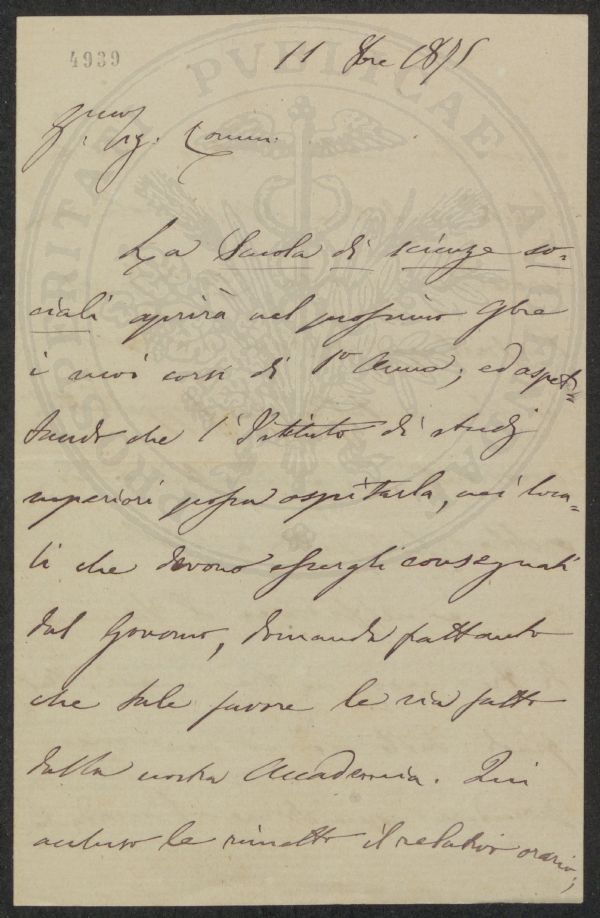 4939
PVBLICAE
11 8bre 1875
Sig. Comm.
La Scuola di scienze so-
ciali aprirà nel prossimo 9bre
i nuovi corsi di 1o Anno; ed aspet-
tando che l'Istituto di studj
superiori possa ospitarla, nei loca-
li che devono essergli consegnati
dal Governo, domanda frattanto
che tale favore le sia fatto
dalla nostra Accademia. Qui
accluso le rimetto il relativo orario;